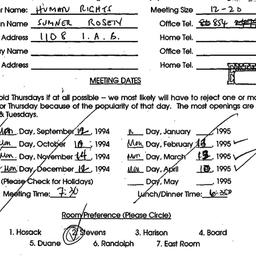 r Name: HUMAN RIGHTS Meeting Size 12-20
an Name SUMNER ROSEN Office Tel. 854
Address 1108 I.A.B. Home Tel.
ry Name Office Tel.
Address Home Tel.
MEETING DATES
oid Thursdays if at all possible -- we most likely will have to reject one or mo
for Thursday because of the popularity of that day. The most openings are
& Tuesdays.
Mon. Day, September 12, 1994 Day, January , 1995
Mon. Day, October 10, 1994 Mon. Day, February 13, 1995
Mon. Day, November 14, 1994 Mon. Day, March 13, 1995
Mon. Day, December 12, 1994 Mon. Day, April 10, 1995
(Please Check for Holidays) Day, May , 1995
Meeting Time: 7:30 Lunch/Dinner Time:
Room Preference (Please Circle)
1. Hosack 2. Stevens 3. Harison 4. Board
5. Duane 6. Randolph 7. East Room